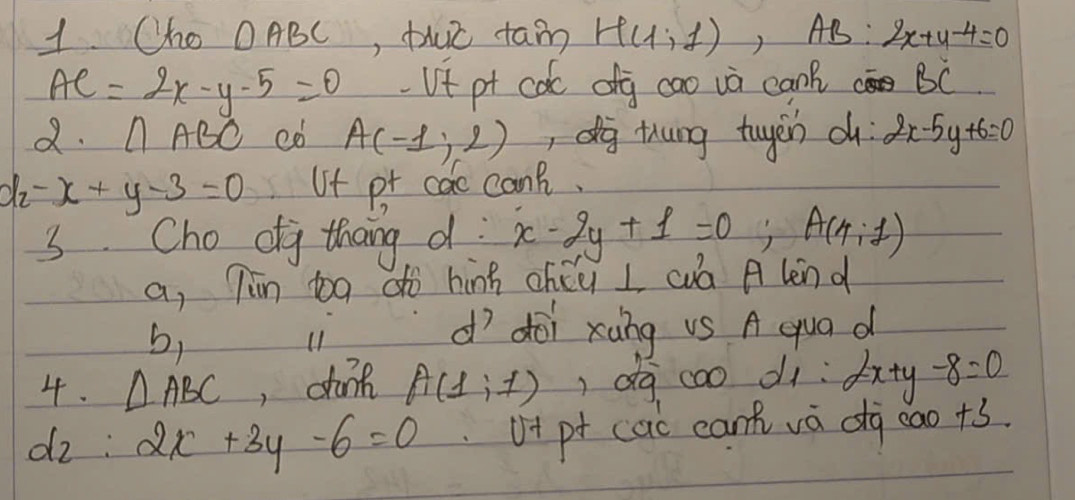 1. Cho ΔABC, trực tâm H(1;1), AB: 2x+y-4=0
AC = 2x-y-5=0 - Vt pt các đg cao và cạnh BC.
2. Δ ABC có A(-1;2), đg trung tuyến d1: 2x-5y+6=0
d2 - x + y - 3 = 0. Vt pt các cạnh.
3. Cho đg thẳng d: x - 2y + 1 = 0; A(4;1)
a, Tìm tọa độ hình chiếu ⊥ của A lên d
b, " đ' đối xứng vs A qua d
4. Δ ABC, đỉnh A(1;1), đg cao d1: 2x+y-8=0
d2: 2x + 3y - 6 = 0. Vt pt các cạnh và đg cao t3.